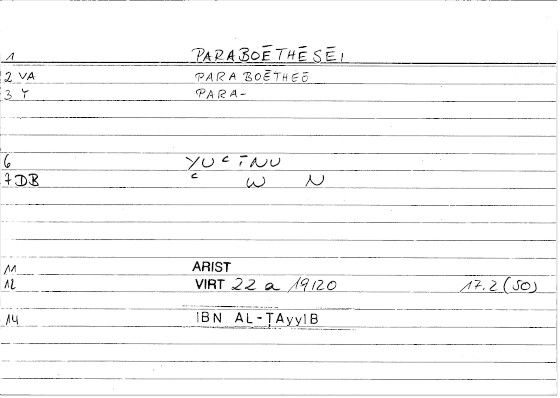 1 PARABOĒTHĒSEI
2 VA PARABOĒTHEŌ
3 Y PARA-
6 YUᶜĪNU
7 DB ᶜ W N
11 ARIST
12 VIRT 22 a 19/20 17.2 (50)
14 IBN AL-ṬAyyIB